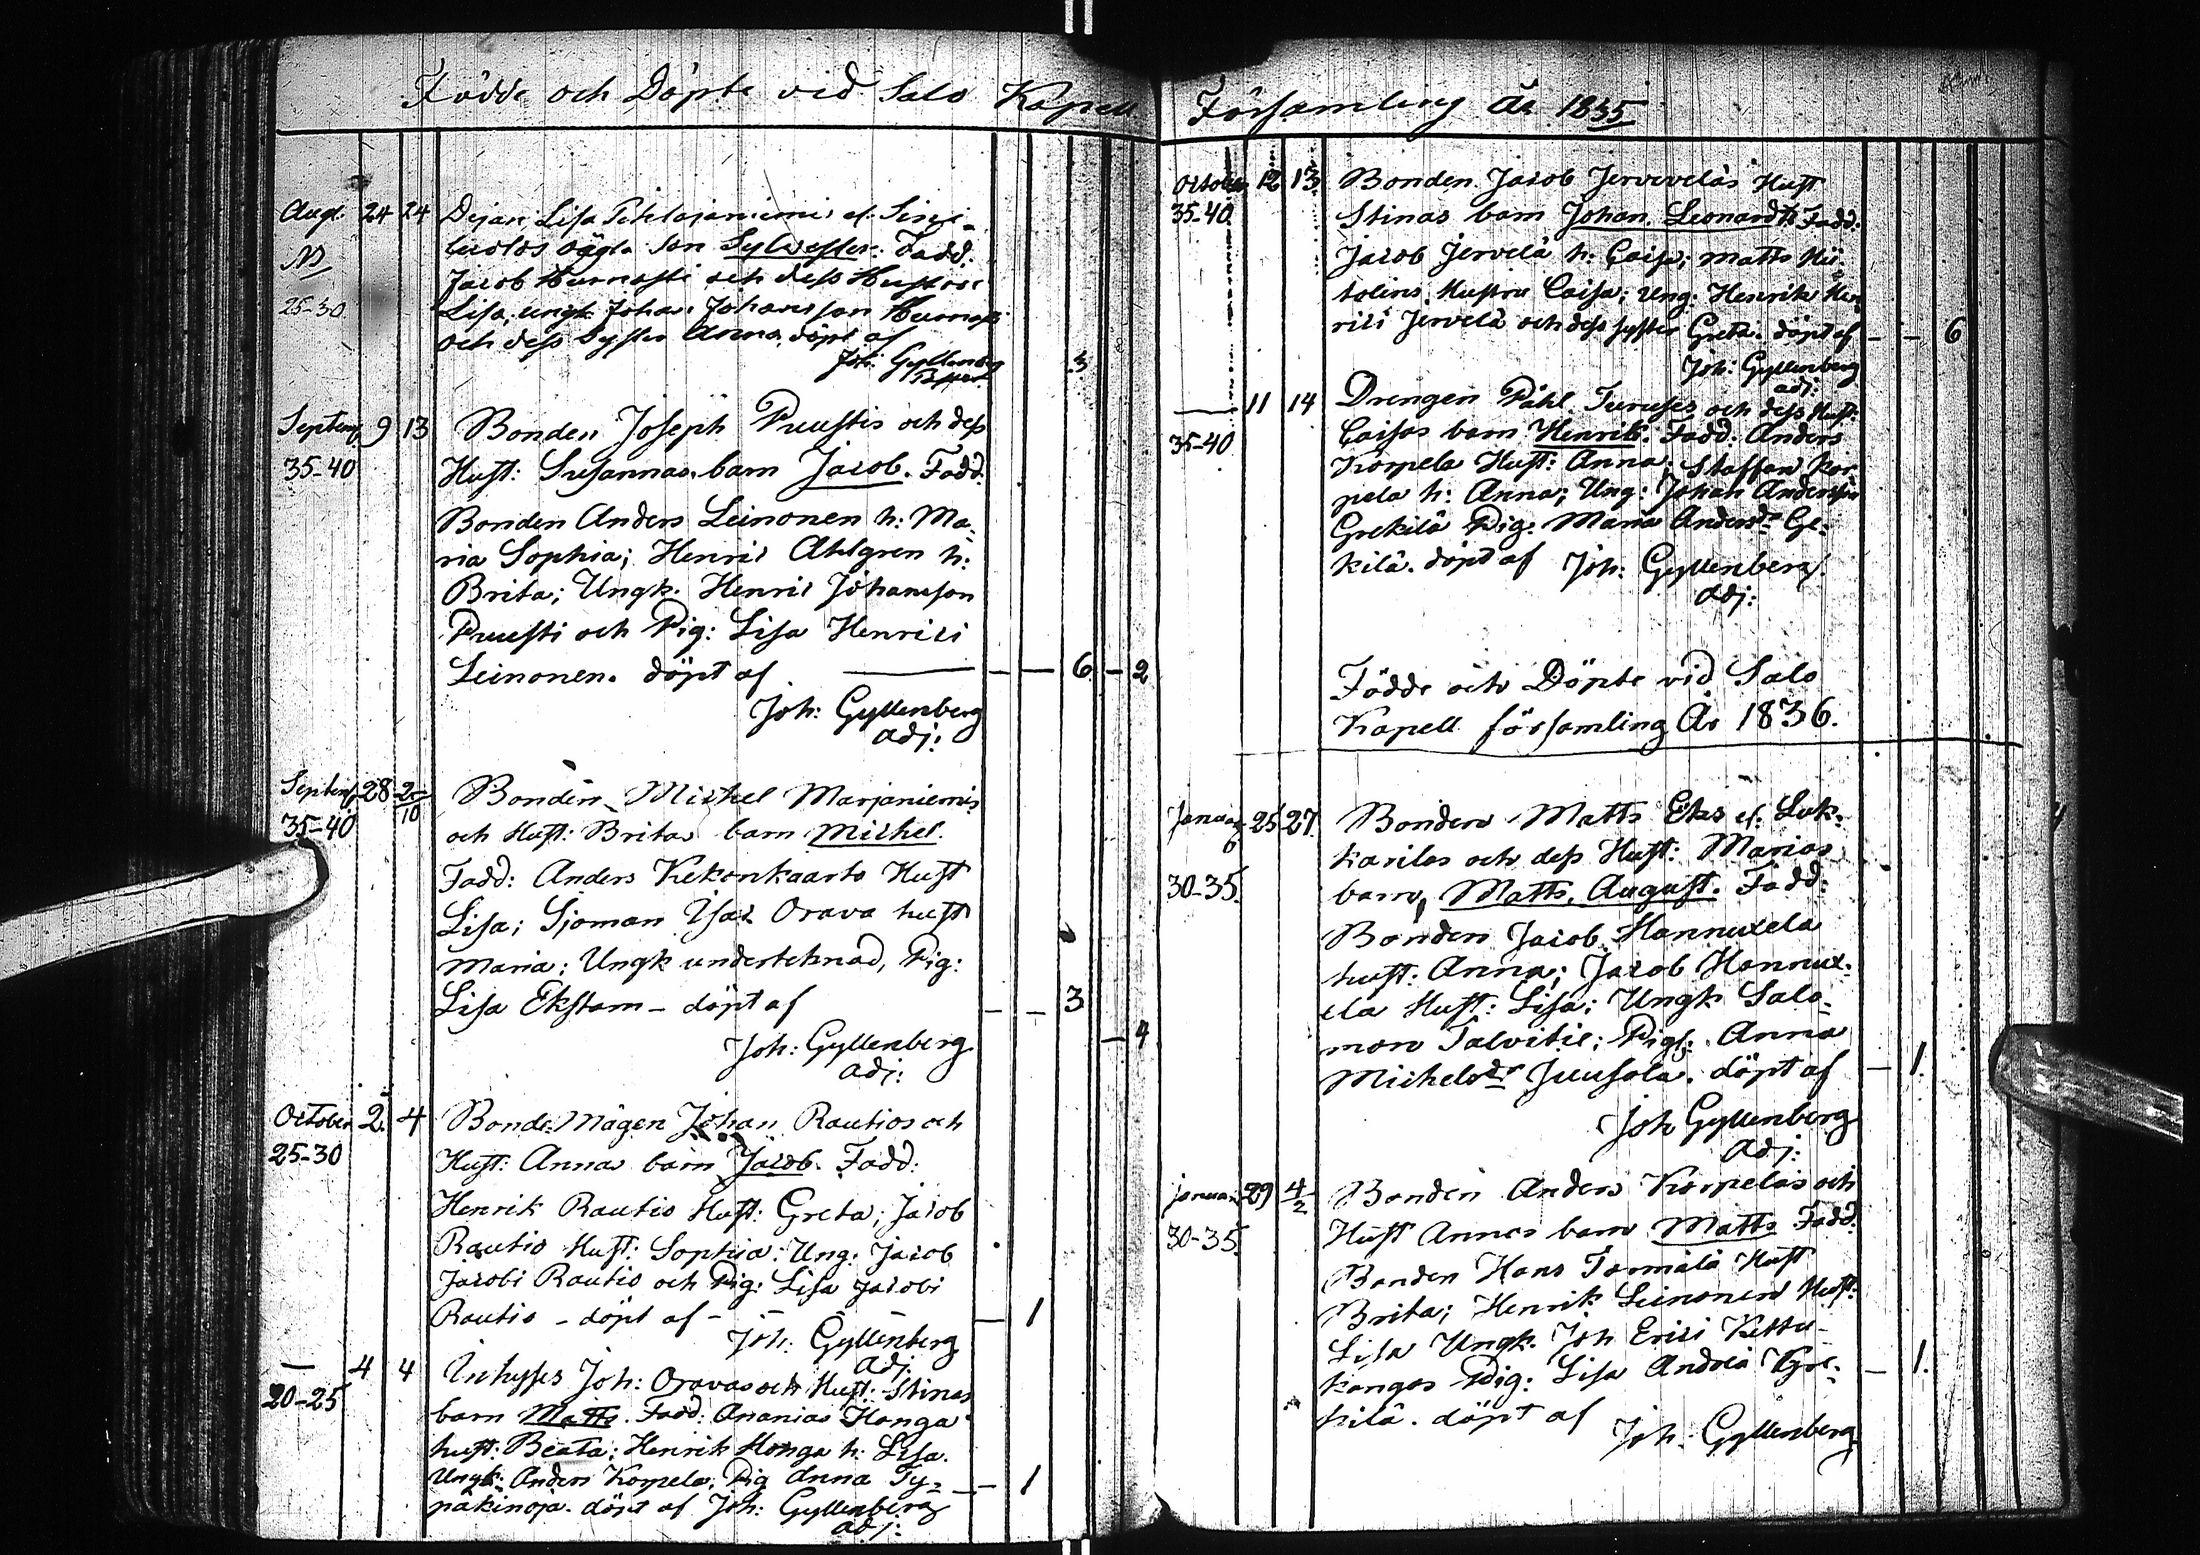 Födde och Döpte vid Salo Kapell
Augt. 24 24 Dejan Lisa Pihlajaniemi el.
oägta son Sylvester. Fadd.
25-30 Jacob Hurnasti och dess Hustru
Lisa, ungk Johan Johansson
och dess Syster Anna, döpt af
Joh: Gyllenberg
3
Septemb 9 13 Bonden Joseph Puustis och dess
35-40 Hust: Susannas barn Jacob. Fadd.
Bonden Anders Leinonen h: Ma-
ria Sophia; Henric Ahlgren h:
Brita; Ungk. Henric Johansson
Puusti och Pig: Lisa Henrici
Leinonen. döpt af — — — 6 — 2
Joh: Gyllenberg
adj:
Septemb 28 2/10 Bonden Michel Marjaniemis
35-40 och Hust: Britas barn Michel.
Fadd: Anders Kekonkaarto Hust
Lisa; Sjöman Isac Orava hust
Maria; Ungk undertecknad, Pig:
Lisa Ekstam - döpt af — — 3
Joh: Gyllenberg — 4
adj:
October 2 4 Bonde Mågen Johan Rautios och
25-30 Hust: Annas barn Jacob. Fadd:
Henrik Rautio Hust: Greta; Jacob
Rautio Hust: Sophia; Ung. Jacob
Jacobi Rautio och Pig: Lisa Jacobi
Rautio - döpt af - — 1
Joh: Gyllenberg
adj.
— 4 4 Inhyses Joh: Oravas och Hust: Stinas
20-25 barn Matts. Fadd: Ananias Honga
hust: Beata; Henrik Honga h: Lisa.
Ungk: Anders Korpela; Pig Anna Ty-
— — 1
döpt af Joh: Gyllenberg
adj:
Församling År 1835
October 12 13 Bonden Jacob Jerveläs Hust
35-40 Stinas barn Johan Leonard Fadd:
Jacob Jervelä h: Caisa; Matts
Hustru Caisa; Ung: Henrik Hen-
rici Jervelä och dess syster Greta. döpt af — — 6
Joh: Gyllenberg
adj:
— 11 14 Drengen Påhl och dess Hust:
35-40 Caisas barn Henrik. Fadd: Anders
Korpela Hust: Anna; Staffan Kor-
pela h: Anna; Ung: Johan Andersson
Grekilä Pig: Maria Andersdr Gre-
kilä. döpt af Joh: Gyllenberg.
adj:
Födde och Döpte vid Salo
Kapell församling År 1836.
Januari 25 27 Bonden Matts Eks el. Luk-
karilas och dess Hust: Marias
30-35 barn, Matts August. Fadd:
Bonden Jacob Hannuxela
hust: Anna; Jacob Hannux-
ela Hust: Lisa; Ungk Salo-
mon Talvitie; Pig: Anna
Michelsdr Juusola. döpt af — 1.
Joh Gyllenberg
adj:
Januari 29 4/2 Bonden Anders Korpelas och
30-35 Hust Annas barn Matts Fadd:
Bonden Hans Tormälä Hust
Brita; Henrik Leinonen Hust:
Lisa Ungk. Joh Erici Kettu-
kangas Pig: Lisa Andreä — 1.
kilä. döpt af Joh: Gyllenberg